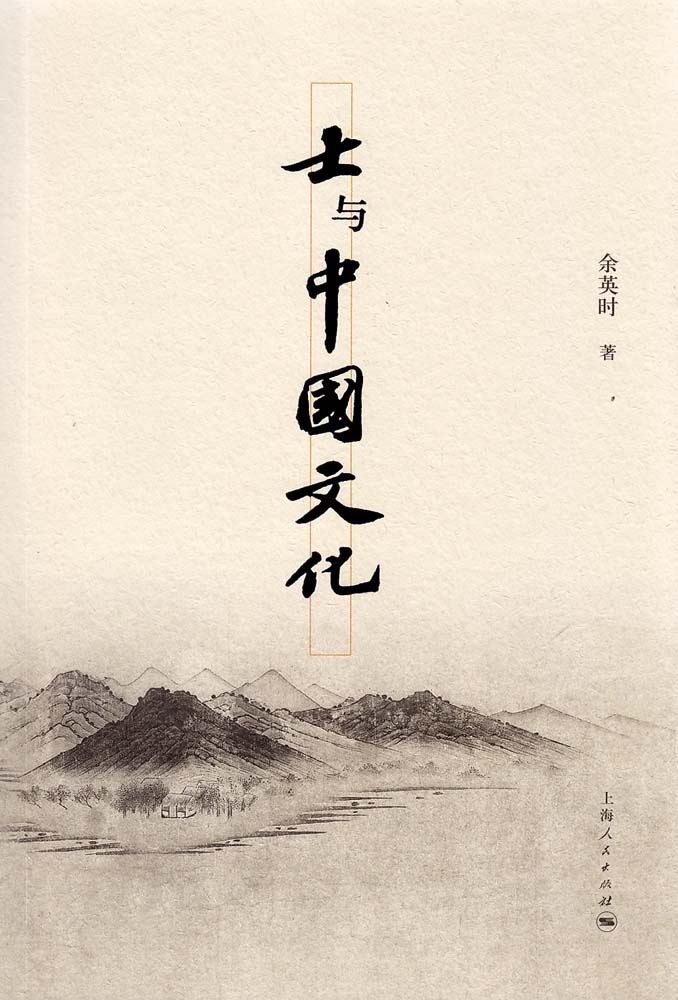 士与中國文化
余英时 著
上海人民出版社